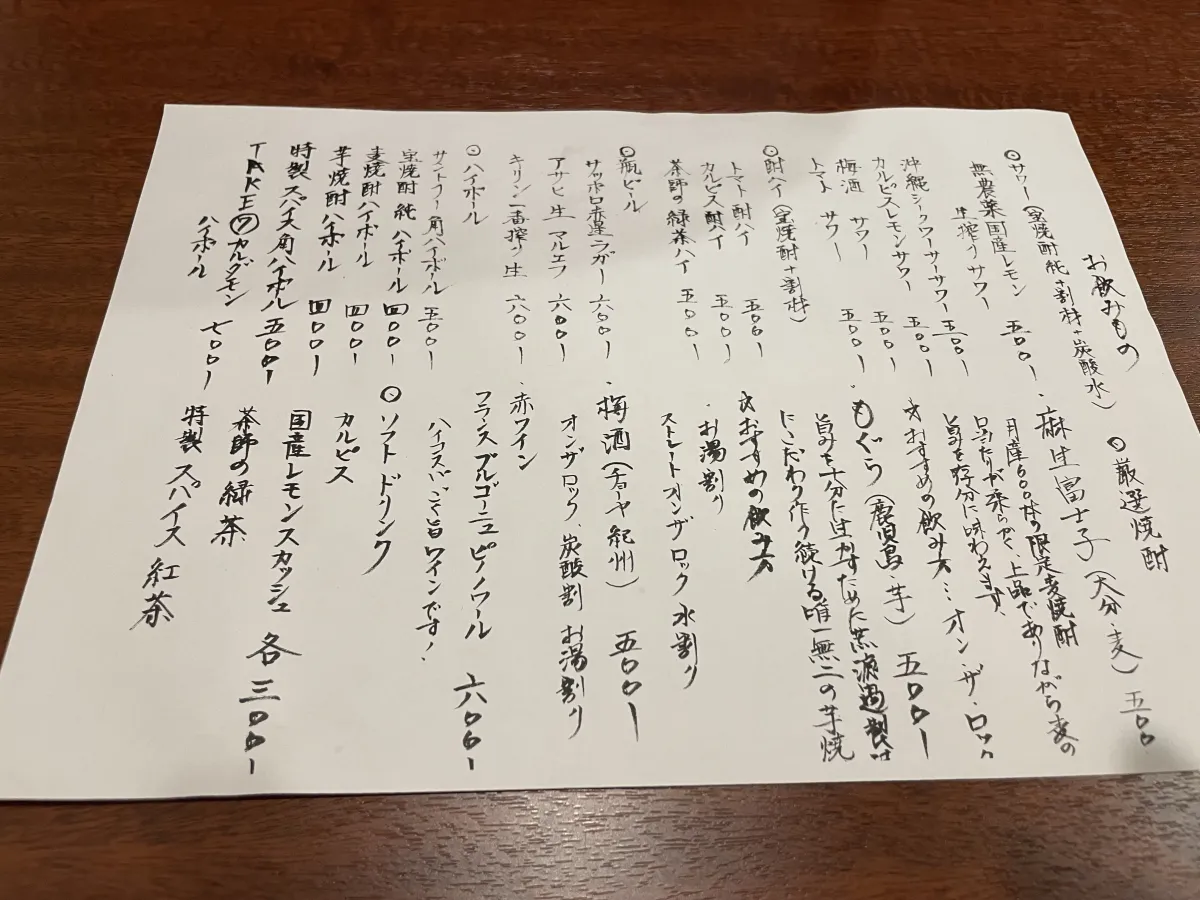 お飲みもの
◎サワー(宝焼酎純+割材+炭酸水)
無農薬国産レモン
生搾りサワー 五〇〇ー
沖縄シークワーサーサワー 五〇〇ー
カルピスレモンサワー 五〇〇ー
梅酒 サワー
トマト サワー 五〇〇ー
◎酎ハイ(宝焼酎+割材)
トマト酎ハイ 五〇〇ー
カルピス酎ハイ 五〇〇ー
茶師の緑茶ハイ 五〇〇ー
◎瓶ビール
サッポロ赤星ラガー 六〇〇ー
アサヒ生 マルエフ 六〇〇ー
キリン一番搾り生 六〇〇ー
◎ハイボール
サントリー角ハイボール 五〇〇ー
宝焼酎 純 ハイボール 四〇〇ー
麦焼酎ハイボール 四〇〇ー
芋焼酎ハイボール 四〇〇ー
特製スパイス角ハイボール 五〇〇ー
TAKE⑦カルダモン
ハイボール 七〇〇ー
◎厳選焼酎
・麻生富士子(大分・麦) 五〇〇
月産600本の限定麦焼酎
口あたりが柔らかく、上品でありながら麦の
旨みを存分に味わえます。
☆おすすめの飲み方…オン・ザ・ロック
・もぐら(鹿児島・芋) 五〇〇ー
旨みを十分に生かすために荒濾過製法
にこだわり作り続ける唯一無二の芋焼
☆おすすめの飲み方
・お湯割り
ストレート オンザロック 水割り
・梅酒(チョーヤ 紀州) 五〇〇ー
オンザロック、炭酸割 お湯割り
・赤ワイン
フランスブルゴーニュ ピノノワール 六〇〇ー
ハイコスパ、旨ワインです!
◎ソフトドリンク
カルピス
国産レモンスカッシュ 各三〇〇ー
茶師の緑茶
特製 スパイス 紅茶